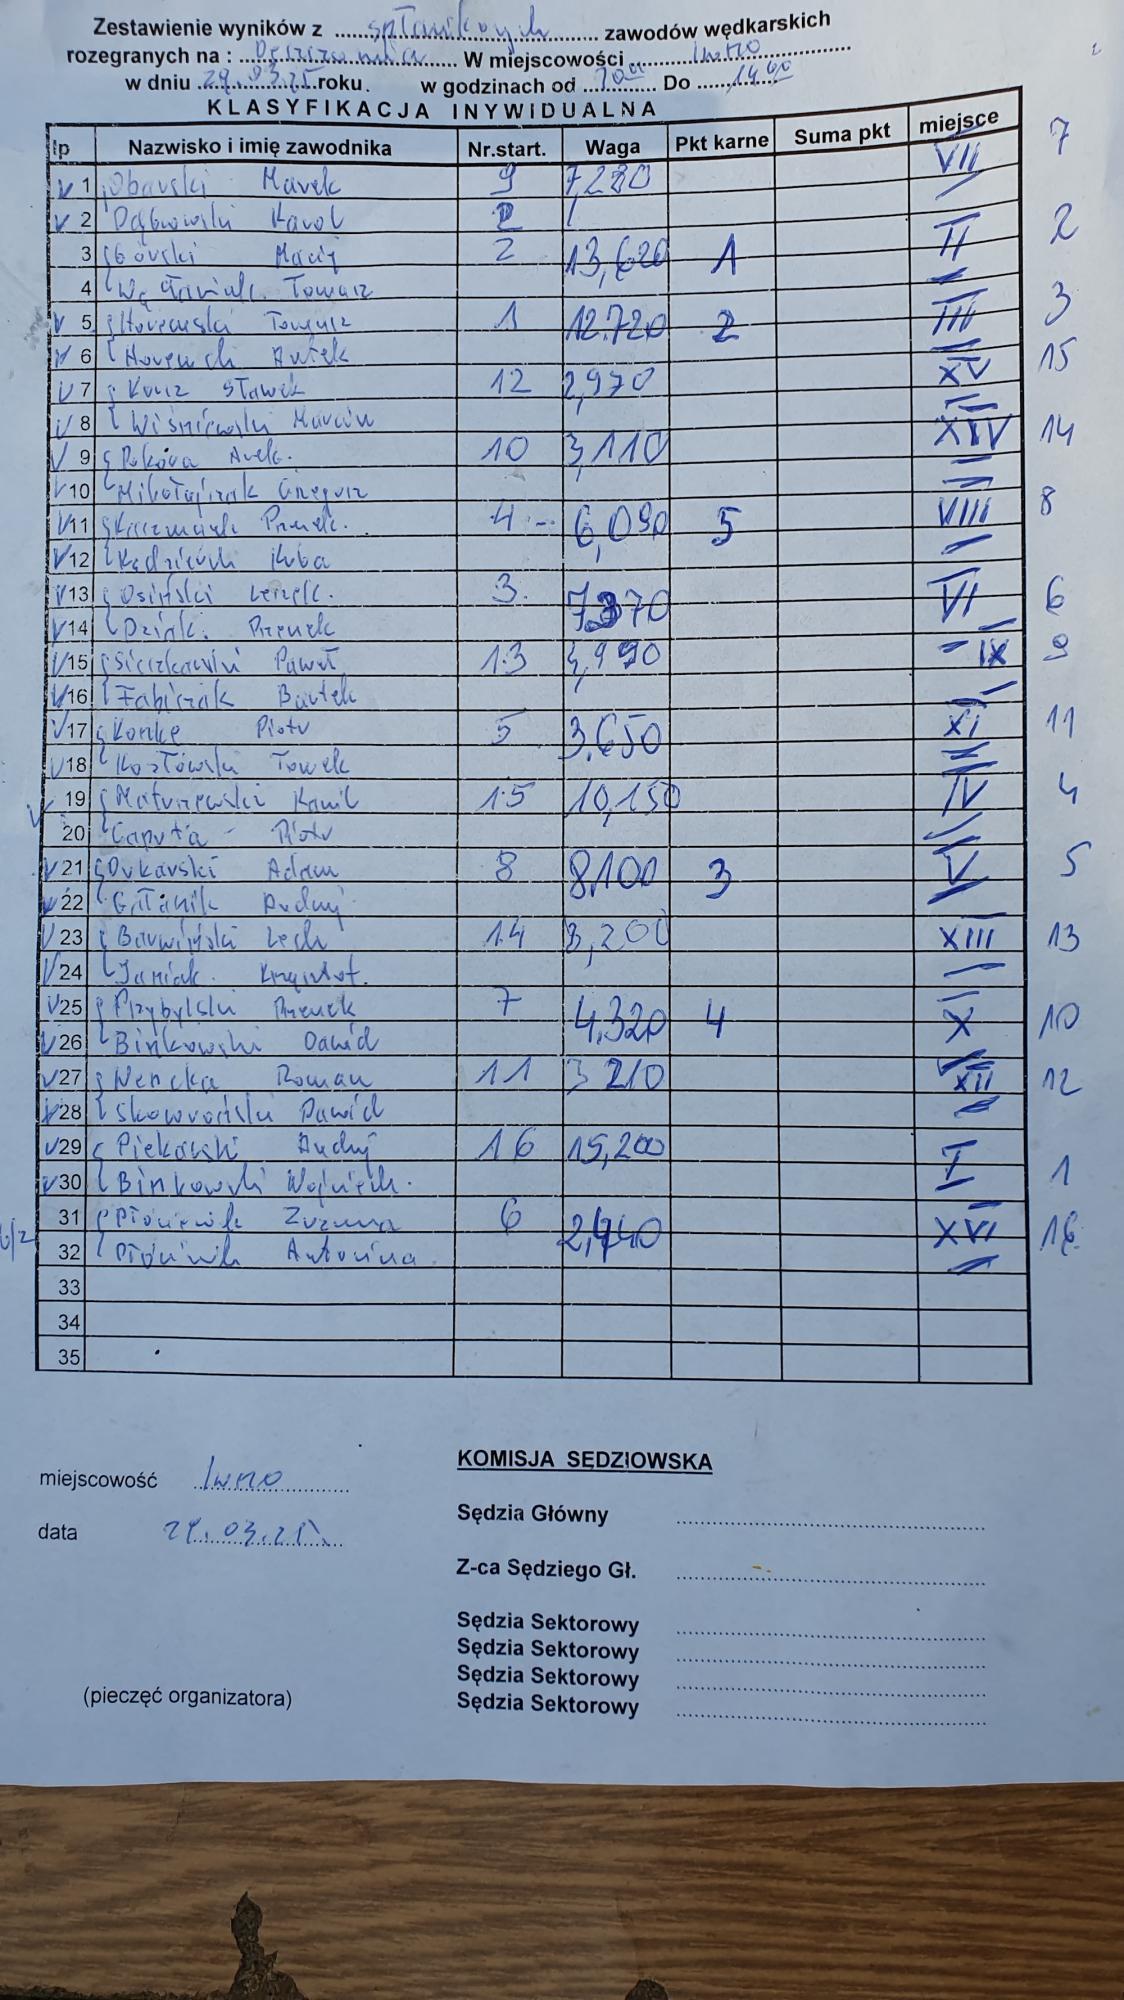 Zestawienie wyników z spławikowych zawodów wędkarskich
rozegranych na : W miejscowości Iwno
w dniu 29.03.25 roku. w godzinach od 10 00 Do 14 00
KLASYFIKACJA INYWIDUALNA
lp Nazwisko i imię zawodnika Nr.start. Waga Pkt karne Suma pkt miejsce
1 Marek 9 7,280 VII 7
2 Karol 2
3 Górski Maciej 2 13,620 1 II 2
4 Tomasz
5 Tomasz 1 12.720 2 III 3
6 Antek
7 Sławek 12 2,970 XV 15
8 Wiśniewski Marcin
9 Arek. 10 3,110 XIV 14
10 Mikołajczak Grzegorz
11 Kaczmarek Przemek. 4 6,090 5 VIII 8
12 Kuba
13 Osiński Leszek. 3. 7,370 VI 6
14 Przemek
15 Paweł 13 IX 9
16 Fabiszak Bartek
17 Konke Piotr 5 3.650 XI 11
18 Kozłowski Tomek
19 Kamil 15 10,150 IV 4
20 Caputa Piotr
21 Adam 8 8,100 3 V 5
22 Andrzej
23 Barwiński Lech 14 3,200 XIII 13
24 Janiak. Krzysztof.
25 Przybylski Przemek 7 4,320 4 X 10
26 Binkowski Dawid
27 Nencka Roman 11 3 210 XII 12
28 Skowroński Dawid
29 Piekarski Andrzej 16 15,200 I 1
30 Binkowski Wojciech.
31 Zuzanna 6 2,440 XVI 16
32 Antonina
33
34
35
miejscowość Iwno
data 29.03.25r.
KOMISJA SĘDZIOWSKA
Sędzia Główny
Z-ca Sędziego Gł.
Sędzia Sektorowy
Sędzia Sektorowy
Sędzia Sektorowy
Sędzia Sektorowy
(pieczęć organizatora)